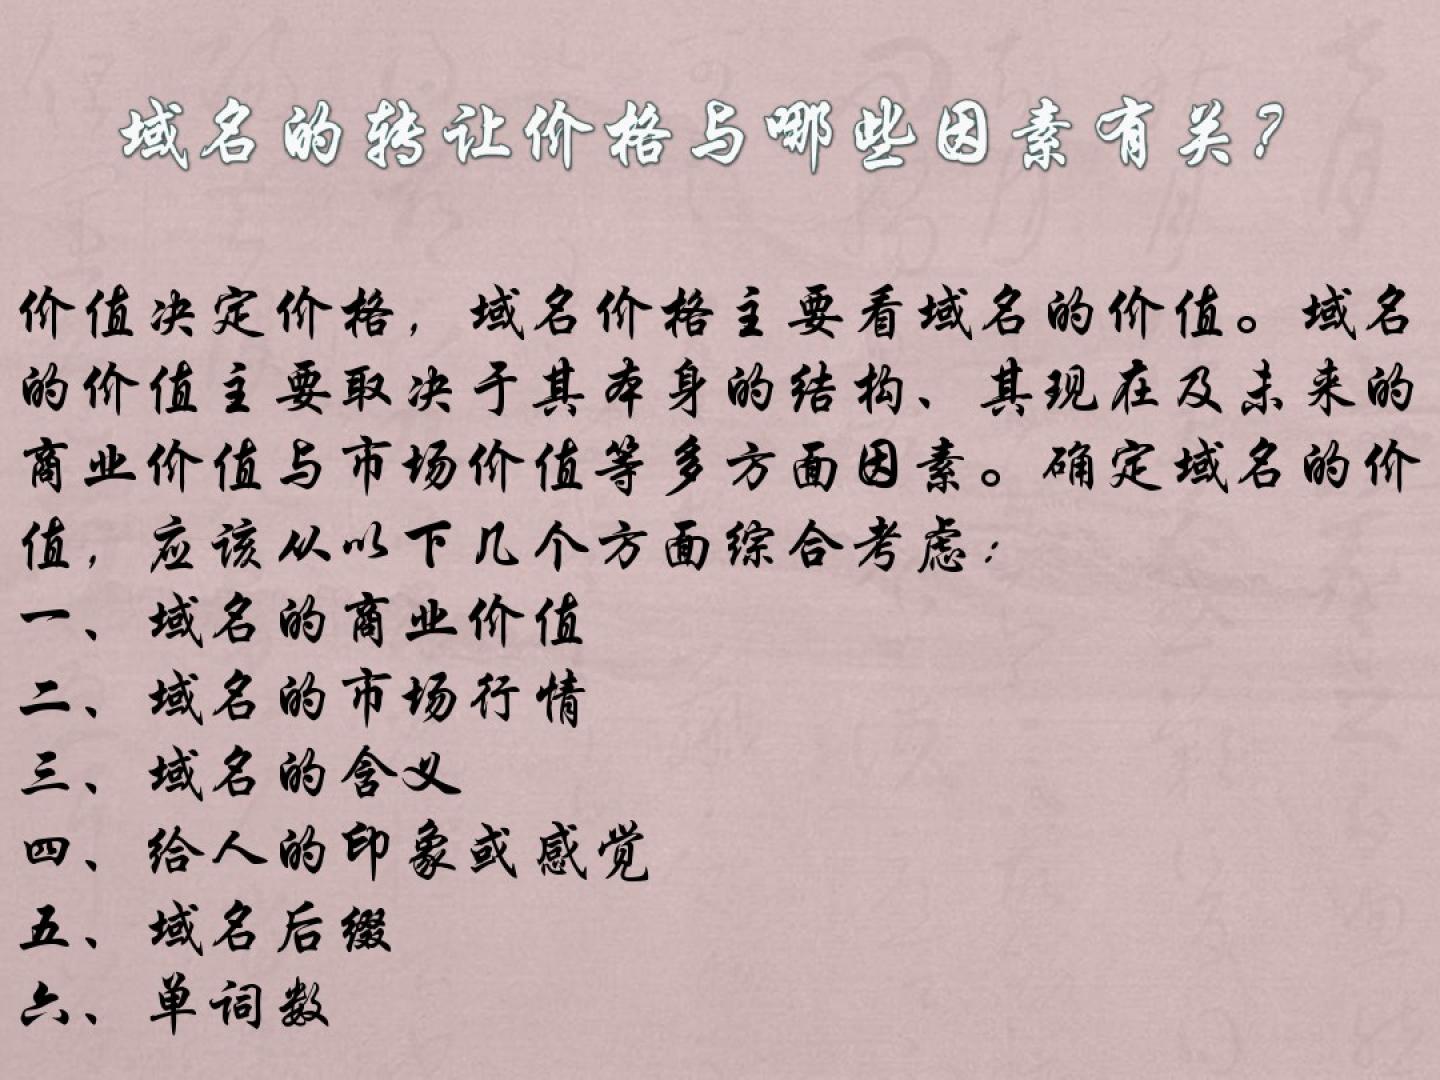 域名的转让价格与哪些因素有关？
价值决定价格，域名价格主要看域名的价值。域名
的价值主要取决于其本身的结构、其现在及未来的
商业价值与市场价值等多方面因素。确定域名的价
值，应该从以下几个方面综合考虑：
一、域名的商业价值
二、域名的市场行情
三、域名的含义
四、给人的印象或感觉
五、域名后缀
六、单词数